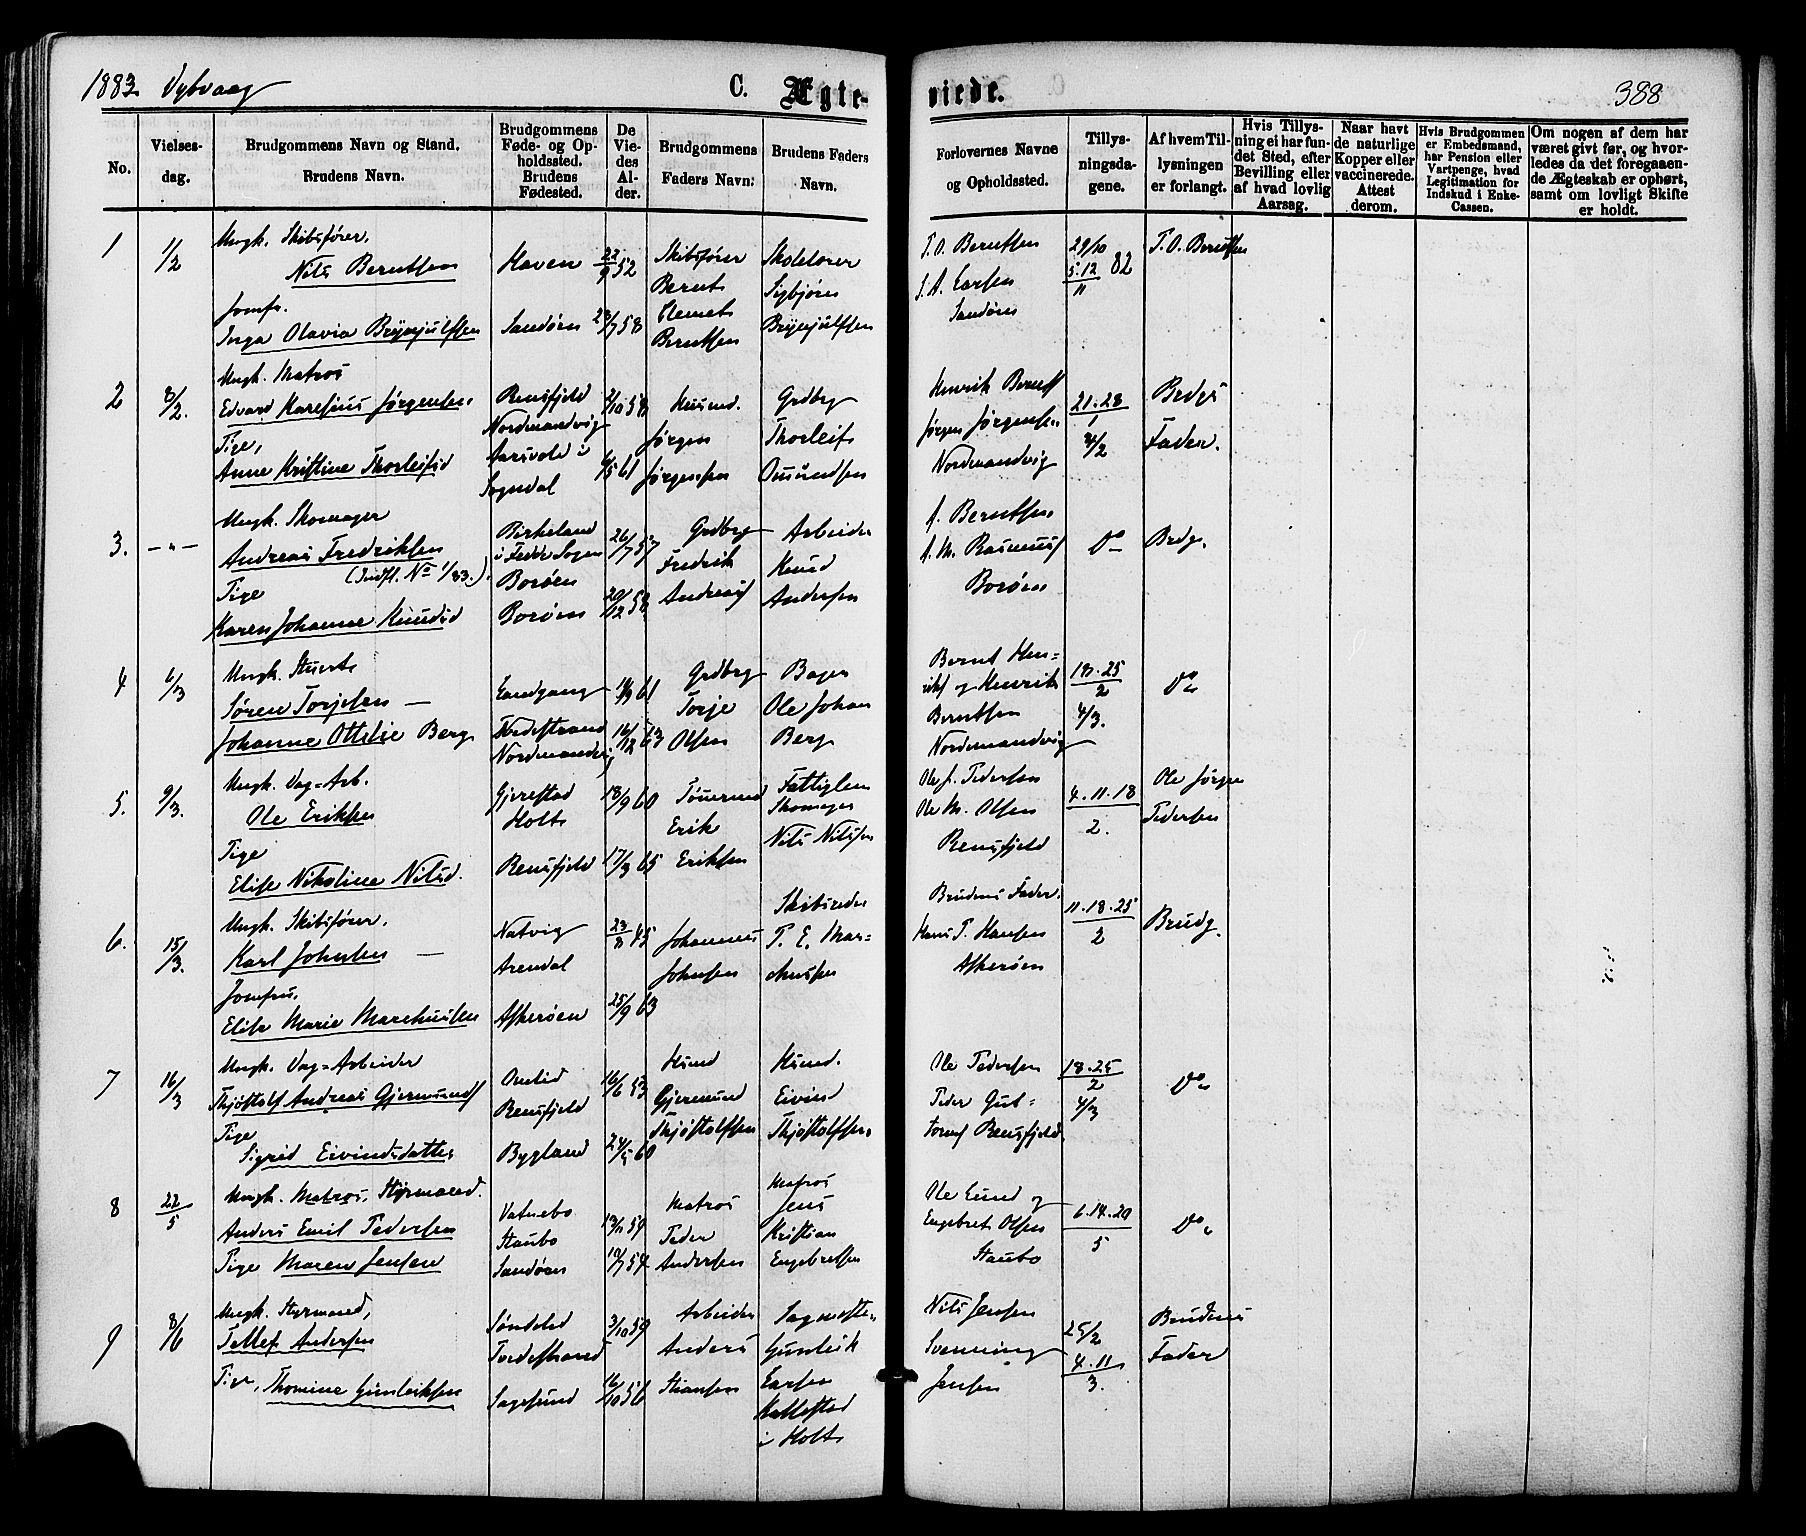 1883 Dybvaag
C. Ægteviede.
388
No.
Vielsesdag.
Brudgommens Navn og Stand.
Brudens Navn.
Brudgommens Føde- og Opholdssted. Brudens Fødested.
De Viedes Alder.
Brudgommens Faders Navn.
Brudens Faders Navn.
Forlovernes Navne og Opholdssted.
Tillysningsdagene.
Af hvem Tillysningen er forlangt.
Hvis Tillysning ei har fundet Sted, efter Bevilling eller af hvad lovlig Aarsag.
Naar havt de naturlige Kopper eller vaccinerede. Attest derom.
Hvis Brudgommen er Embedsmand, har Pension eller Vartpenge, hvad Legitimation for Indskud i Enke-Cassen.
Om nogen af dem har været givt før, og hvorledes da det foregaaende Ægteskab er ophørt, samt om lovligt Skifte er holdt.
1
1/2
Ungk. Skibsfører.
Nils Berntsen
Jomfr.
Inga Olavia Brynjulfsen
Haven
Sandøen
22/9 52
23/7 58
Skibsfører
Bernt
Clemet
Berntsen
Skolelærer
Sigbjørn
Brynjulfsen
T. O. Berntsen
T. A. Larsen
Sandøen
29/10
5.12/11 82
T. O. Berntsen
2
8/2.
Ungk. Matros
Edvard Karesius Jørgensen.
Pige,
Anne Kristine Thorleifsd
Rensfjeld
Nordmandvig
Aarsvold i
Sogndal
2/10 58
6/5 61
Husmd.
Jørgen
Jørgensen
Grdbrg
Thorleif
Omundsen
Henrik Berntf
Jørgen Jørgensen
Nordmandvig
21.28/1
4/2
Brdgs
Fader.
3.
-"-
Ungk. Skomager
Andreas Fredriksen
(Indfl. No 1/83.)
Pige
Karen Johanne Knudsd
Birkeland
i Fedde Sogn
Borøen
Borøen
26/7 57
20/12 58
Grdbrg
Fredrik
Andreasf
Arbeider
Knud
Andersen
A. Berntsen
A. M. Rasmusf
Borøen
Do
Brdg.
4
6/3
Ungk. Stuert
Søren Torjesen —
Johanne Ottilie Berg
Landgang
Tvedestrand
Nordmandvig
18/9 61
16/12 63
Grdbrg
Torje
Olsen
Bager
Ole Johan
Berg
Bernt Henrikf og Henrik
Berntsen
Nordmandvig
18.25/2
4/3.
Do
5.
9/3.
Ungk. Dag=Arb.
Ole Eriksen
Pige
Elise Nikoline Nilsd.
Gjerestad
Holt
Rensfjeld
18/9 60
17/3 65
Tømermd
Erik
Eriksen
Fattiglem
Skomager
Nils Nilsen
Ole J. Pedersen
Ole M. Olsen
Rensfjeld
4.11.18/2.
Ole Jørgen
Pedersen
6.
15/3.
Ungk. Skibsfører.
Karl Johnsen —
Jomfru.
Elise Marie Marchussen
Natvig
Arendal
Askerøen
23/8 45
25/9 63
Johannes
Johnsen
Skibsreder
T. E. Marchussen
Brudens Fader.
Hans T. Hansen
Askerøen
11.18.25/2
Brudg.
7
16/3
Ungk. Dag=Arbeider
Thjøstolf Andreas Gjermundf
Pige
Sigrid Eivindsdatter
Omlid
Rensfjeld
Bygland
16/6 53
24/5 60
Husmd
Gjermund
Thjøstolfsen
Husmd.
Eivind
Thjøstolfsen
Ole Pedersen
Peder Guttormf Rensfjeld
18.25/2
4/3
Do
8
22/5
Ungk. Matros, Styrmand.
Anders Emil Pedersen
Pige Maren Jensen
Vatnebo
Staubo
Sandøen
10/7 59
Matros
Peder
Andersen
Matros
Jens
Kristian
Engebretsen
Ole Lund og
Engebret Olsen
Staubo
6.14.20/5
Do
9
8/6
Ungk. Styrmand,
Tellef Andersen
Pige, Thomine Gunleiksen
Søndeled
Tvedestrand
Sagesund
3/10 59
16/10 56
Arbeider
Anders
Stiansen
Sagmester
Gunleik
Larsen
Kattestad
i Holt
Nils Jensen
Svenning
Jensen
25/2
4.11/3.
Brudens
Fader